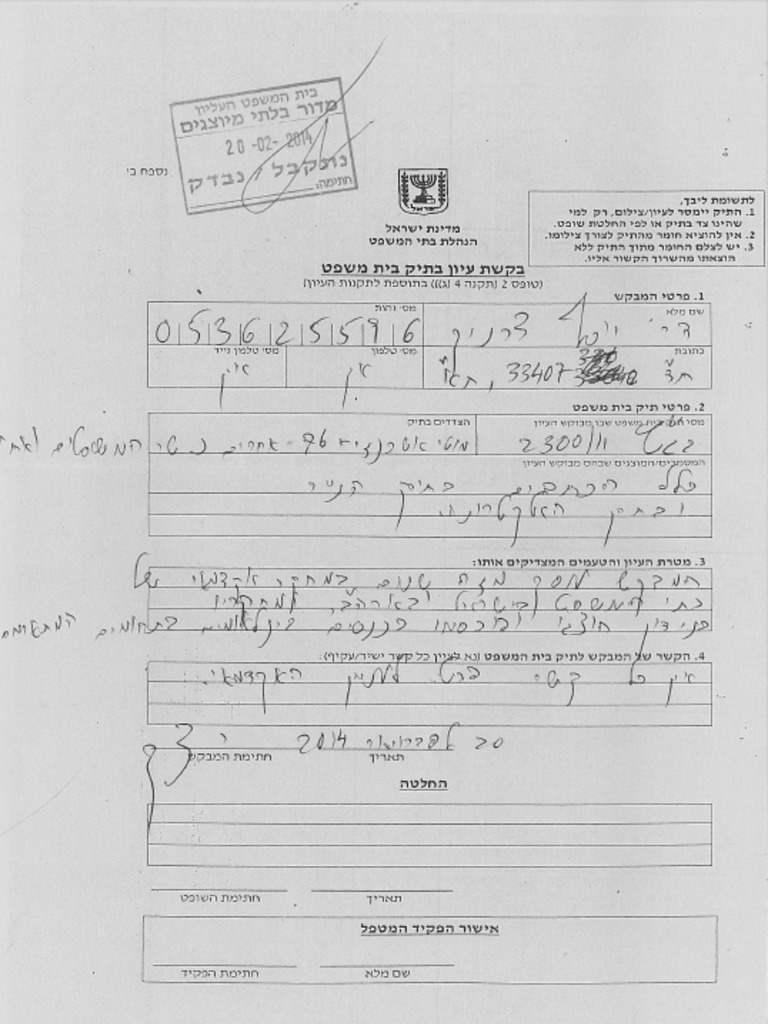 בית המשפט העליון
מדור בלתי מיוצגים
20-02-2014
נתקבל / נבדק
חתימה:
נספח ב'
לתשומת ליבך,
1. התיק יימסר לעיון/צילום, רק למי
שהינו צד בתיק או לפי החלטת שופט.
2. אין להוציא חומר מהתיק לצורך צילומו.
3. יש לצלם החומר מתוך התיק ללא
הוצאתו מהשרוך הקשור אליו.
מדינת ישראל
הנהלת בתי המשפט
בקשת עיון בתיק בית משפט
(טופס 2 (תקנה 4 (ג)) בתוספת לתקנות העיון)
1. פרטי המבקש
שם מלא
מס' זהות
ד"ר יוסף צרניק
0 5 3 6 2 5 5 9 6
כתובת
מס' טלפון
מס' טלפון נייד
ת"ד 33407, ת"א
אין
אין
2. פרטי תיק בית משפט
מס' תיק בית משפט שבו מבוקש העיון
הצדדים בתיק
בגצ 2300/11
מוטי אשכנזי ו-76 אחרים נ' שר המשפטים ואח'
המסמכים/המוצגים שבהם מבוקש העיון
כלל הכתבים בתיק הנייר
ובתיק האלקטרוני.
3. מטרת העיון והטעמים המצדיקים אותו:
המבקש עוסק מזה שנים במחקר אקדמי של
בתי המשפט בישראל ובארה"ב, ומחקריו
בנידון הוצגו ופורסמו בכנסים בינלאומיים בתחומים המתאימים
4. הקשר של המבקש לתיק בית המשפט (נא לציין כל קשר ישיר/עקיף):
אין כל קשר פרט לעניין האקדמאי.
20 לפברואר 2014
תאריך
חתימת המבקש
החלטה
תאריך
חתימת השופט
אישור הפקיד המטפל
שם מלא
חתימת הפקיד